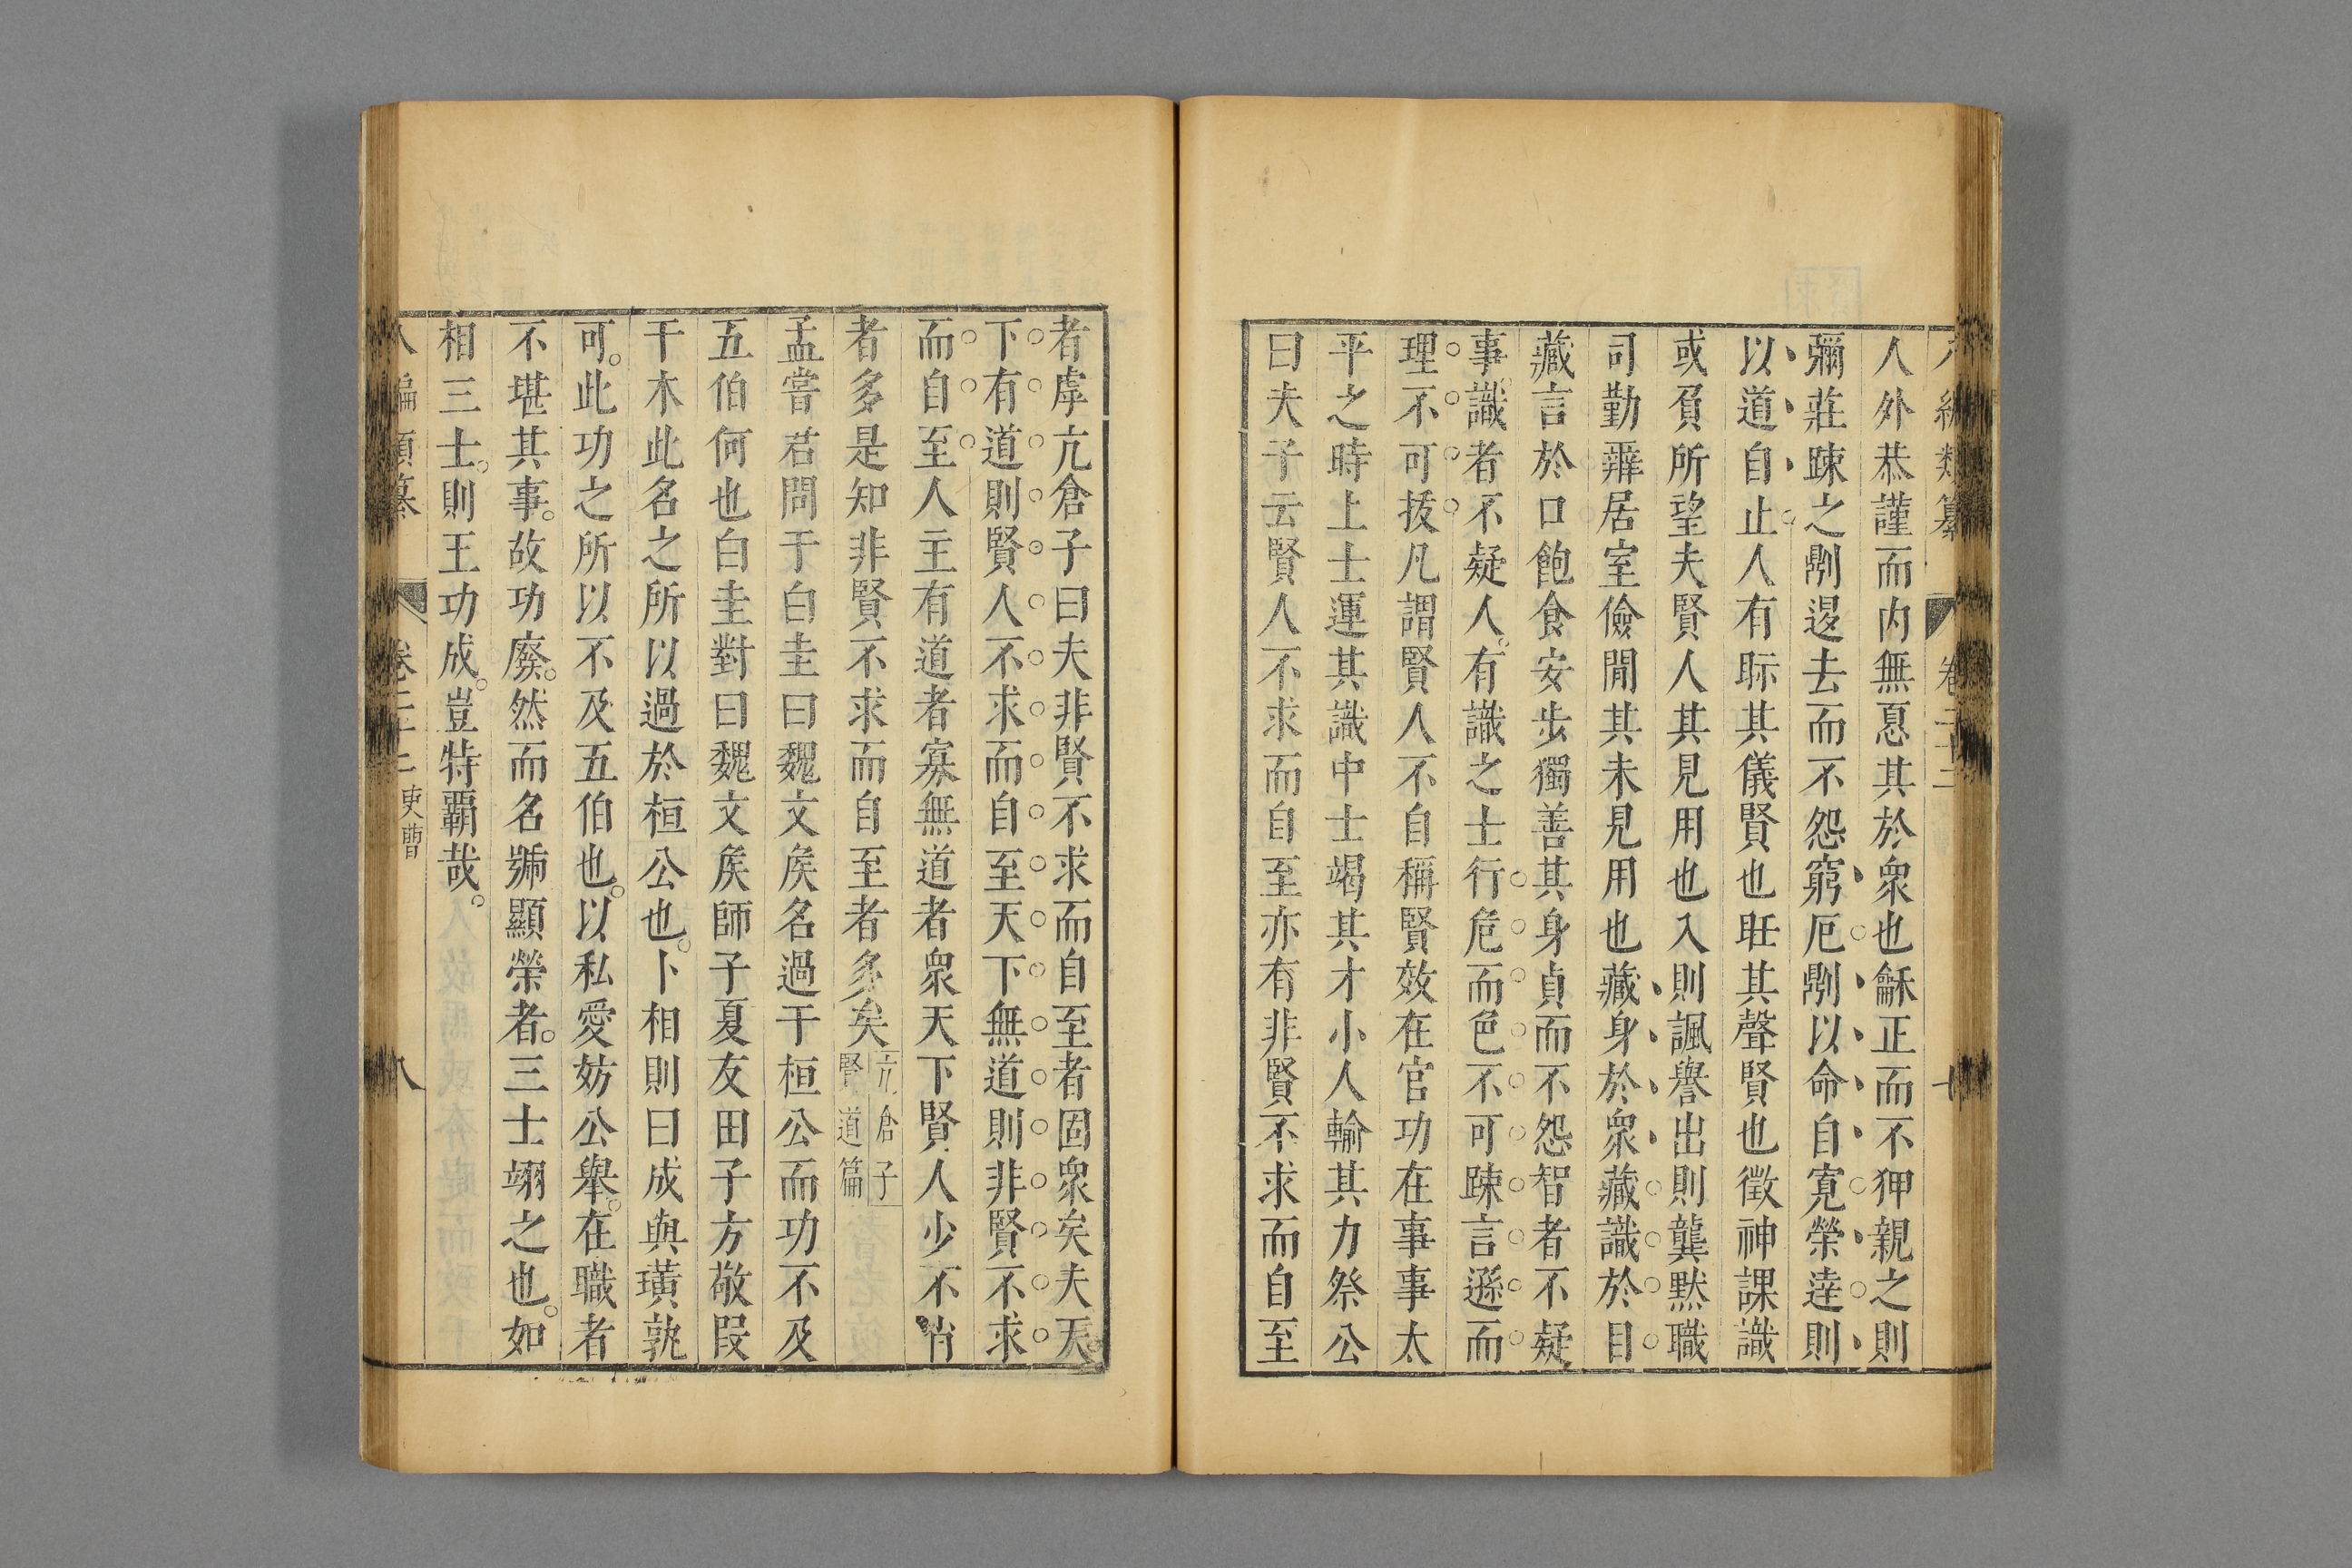 編類纂 卷二十二
人外恭謹而内無慝其於衆也龢正而不狎親之則
彌莊踈之㔁遏去而不怨窮厄㔁以命自寬榮逹則
以道自止人有眎其儀賢也聀其聲賢也徵神課識
或負所望夫賢人其見用也入則諷譽出則龔黙職
司勤辦居室儉閒其未見用也藏身於衆藏識於目
藏言於口飽食安步獨善其身貞而不怨智者不疑
事識者不疑人有識之士行危而色不可踈言遜而
理不可拔凡謂賢人不自稱賢效在官功在事事太
平之時上士運其識中士竭其才小人輸其力祭公
曰夫子云賢人不求而自至亦有非賢不求而自至
者虖亢倉子曰夫非賢不求而自至者固衆矣夫天
下有道則賢人不求而自至天下無道則非賢不求
而自至人主有道者寡無道者衆天下賢人少不肖
者多是知非賢不求而自至者多矣亢倉子賢道篇
孟嘗君問于白圭曰魏文矦名過于桓公而功不及
五伯何也白圭對曰魏文矦師子夏友田子方敬叚
干木此名之所以過於桓公也卜相則曰成與璜孰
可此功之所以不及五伯也以私愛妨公舉在職者
不堪其事故功廢然而名號顯榮者三士翊之也如
相三士則王功成豈特覇哉
八編類纂 卷二十二 吏曹 八